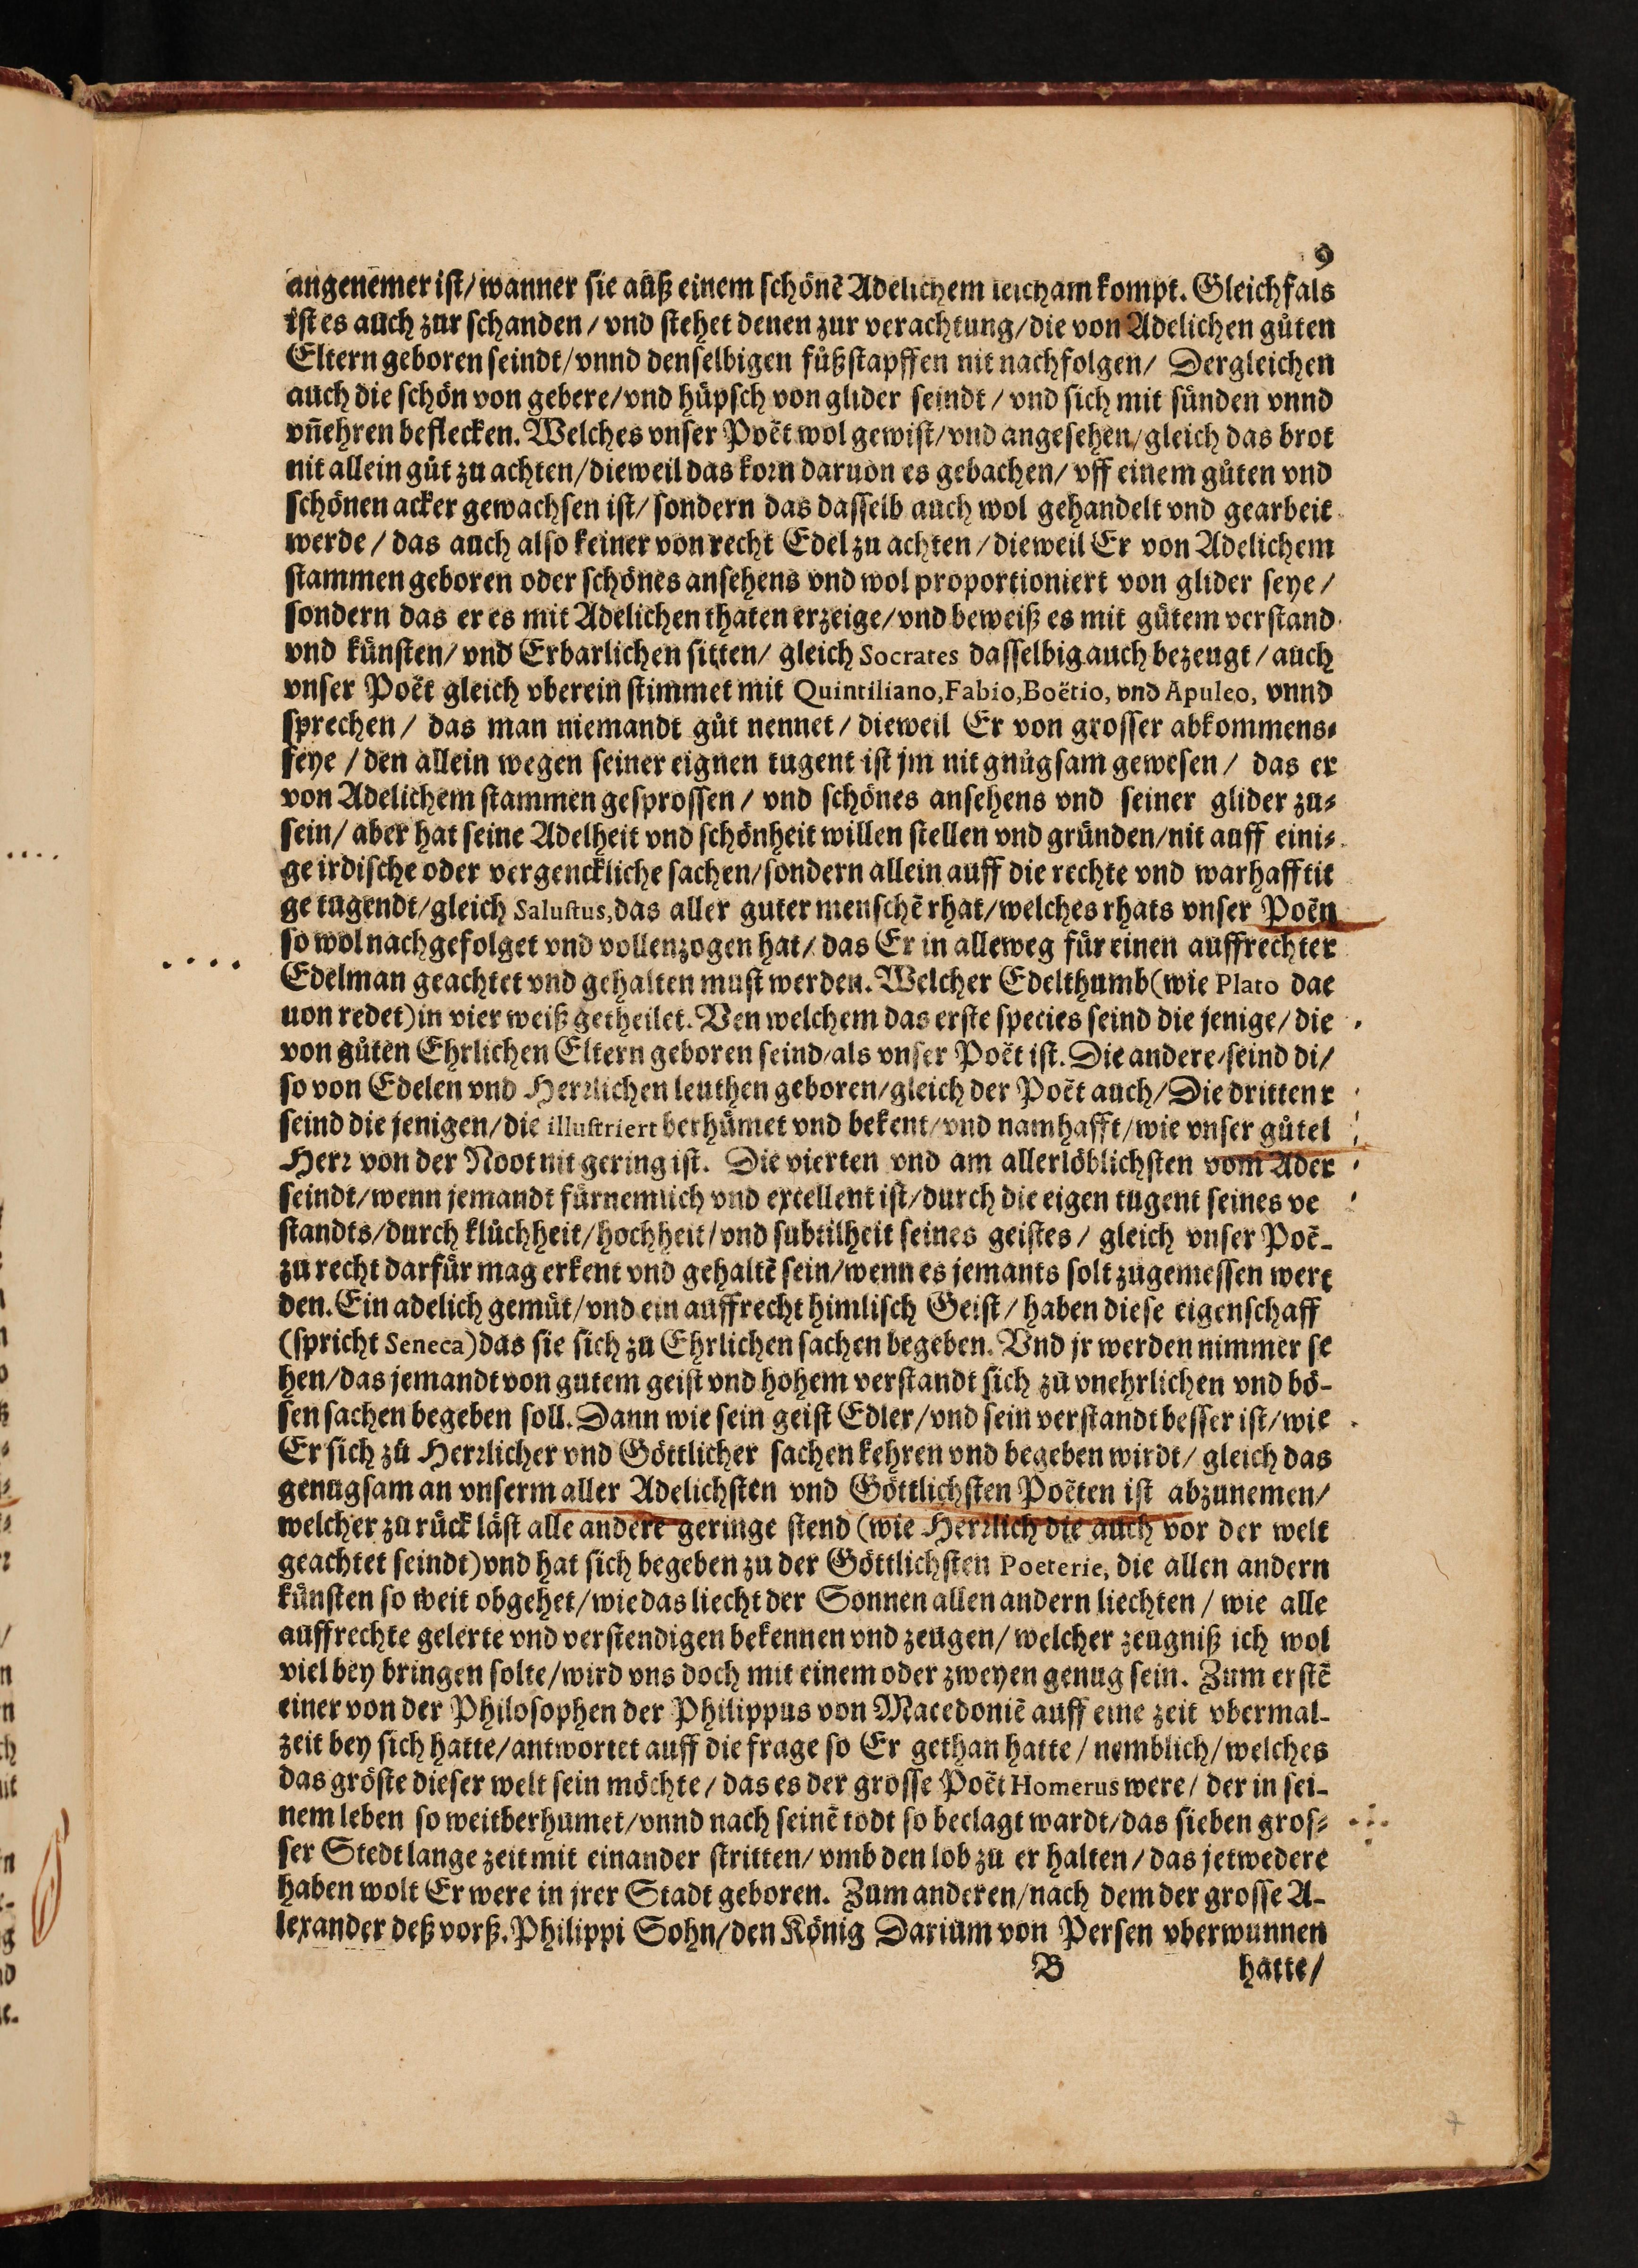 9
angenemer ist/ wanner sie auß einem schönẽ Adelichem leichamkompt. Gleichfals
ist es auch zur schanden / vnd stehet denen zur verachtung/ die von Adelichen gůten
Eltern geboren seindt/ vnnd denselbigen fůßstapffen nit nachfolgen/ Dergleichen
auch die schön von gebere/ vnd hüpsch von glider seindt / vnd sich mit sünden vnnd
vñehren beflecken. Welches vnser Poët wol gewist/ vnd angesehen/ gleich das brot
nit allein gůt zu achten/ dieweil das korn daruon es gebachen/ vff einem gůten vnd
schönen acker gewachsen ist/ sondern das dasselb auch wol gehandelt vnd gearbeit
werde / das auch also keiner von recht Edel zu achten / dieweil Er von Adelichem
stammen geboren oder schönes ansehens vnd wol proportioniert von glider seye /
sondern das er es mit Adelichen thaten erzeige/ vnd beweiß es mit gůtem verstand
vnd künsten/ vnd Erbarlichen sitten/ gleich Socrates dasselbig auch bezeugt / auch
vnser Poët gleich vberein stimmet mit Quintiliano, Fabio, Boëtio, vnd Apuleo, vnnd
sprechen / das man niemandt gůt nennet / dieweil Er von grosser abkommens⸗
seye / den allein wegen seiner eignen tugent ist jm nit gnůgsam gewesen / das er
von Adelichem stammen gesprossen / vnd schönes ansehens vnd seiner glider zu⸗
sein/ aber hat seine Adelheit vnd schönheit willen stellen vnd gründen/ nit auff eini⸗
ge irdische oder vergenckliche sachen/ sondern allein auff die rechte vnd warhafftit
ge tugendt/ gleich Salustus, das aller guter menschẽ rhat/ welches rhats vnser Poën
so wol nachgefolget vnd vollenzogen hat/ das Er in alleweg für einen auffrechter
Edelman geachtet vnd gehalten must werden. Welcher Edelthumb (wie Plato dae
uon redet) in vier weiß getheilet. Ven welchem das erste species seind die jenige/ die
von gůten Ehrlichen Eltern geboren seind/ als vnser Poët ist. Die andere/ seind di/
so von Edelen vnd Herrlichen leuthen geboren/ gleich der Poët auch/ Die dritten r
seind die jenigen/ die illustriert berhümet vnd bekent/ vnd namhafft/ wie vnser gůtel
Herr von der Noot nit gering ist. Die vierten vnd am allerlöblichsten vom Ader
seindt/ wenn jemandt fürnemlich vnd excellent ist/ durch die eigen tugent seines ve
standts/ durch klůchheit/ hochheit/ vnd subtilheit seines geistes / gleich vnser Poë-
zu recht darfür mag erkent vnd gehaltẽ sein/ wenn es jemants solt zugemessen wert
den. Ein adelich gemüt/ vnd ein auffrecht himlisch Geist / haben diese eigenschaff
(spricht Seneca) das sie sich zu Ehrlichen sachen begeben. Vnd jr werden nimmer se
hen/ das jemandt von gutem geist vnd hohem verstandt sich zu vnehrlichen vnd bö-
sen sachen begeben soll. Dann wie sein geist Edler/ vnd sein verstandt besser ist/ wie
Er sich zů Herrlicher vnd Göttlicher sachen kehren vnd begeben wirdt/ gleich das
genugsam an vnserm aller Adelichsten vnd Göttlichsten Poëten ist abzunemen/
welcher zu rück läst alle andere geringe stend (wie Herrlich die auch vor der welt
geachtet seindt) vnd hat sich begeben zu der Göttlichsten Poeterie, die allen andern
künsten so weit obgehet/ wie das liecht der Sonnen allen andern liechten / wie alle
auffrechte gelerte vnd verstendigen bekennen vnd zeugen/ welcher zeugniß ich wol
viel bey bringen solte/ wird vns doch mit einem oder zweyen genug sein. Zum erstẽ
einer von der Philosophen der Philippus von Macedoniẽ auff eine zeit vbermal-
zeit bey sich hatte/ antwortet auff die frage so Er gethan hatte / nemblich/ welches
das gröste dieser welt sein möchte / das es der grosse Poët Homerus were / der in sei-
nem leben so weitberhumet/ vnnd nach seinẽ todt so beclagt wardt/ das sieben gros⸗
ser Stedt lange zeit mit einander stritten/ vmb den lob zu er halten / das jetwedere
haben wolt Er were in jrer Stadt geboren. Zum anderen/ nach dem der grosse A-
lexander deß vorß. Philippi Sohn/ den König Darium von Persen vberwunnen
B hatte/